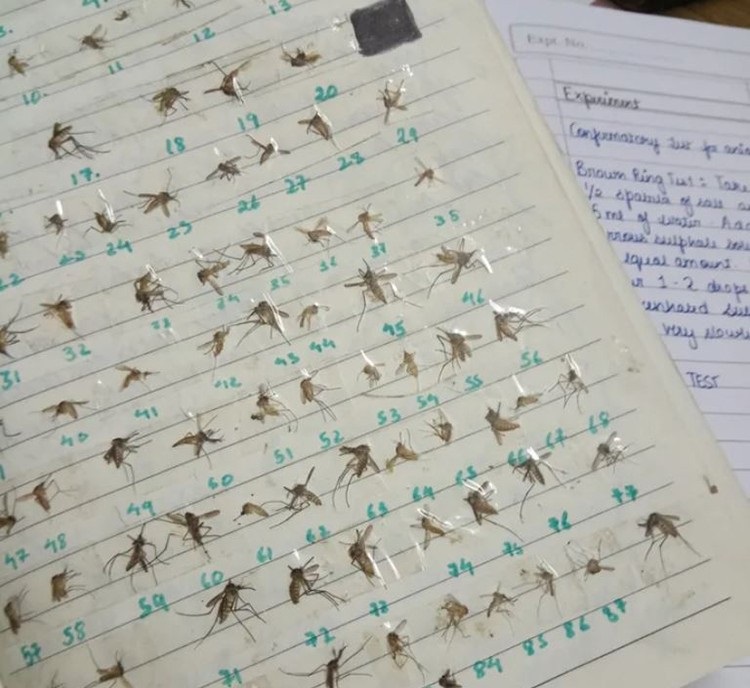 13
12
11
10.
20
19
18
17.
29
28
27
26
25
24
23
22
35
34
33
32
31
46
45
44
43
42
41
40
56
55
54
53
52
51
50
49
48
47
68
67
66
65
64
63
62
61
60
59
58
57
77
76
75
74
73
72
71
87
86
85
84
Expt. No.
Experiment
Confirmatory Test for
Brown Ring Test : Take
1/2 spatula of salt
5 ml of water. Add
sulphate
equal amount
1-2 drops
very slowly
TEST